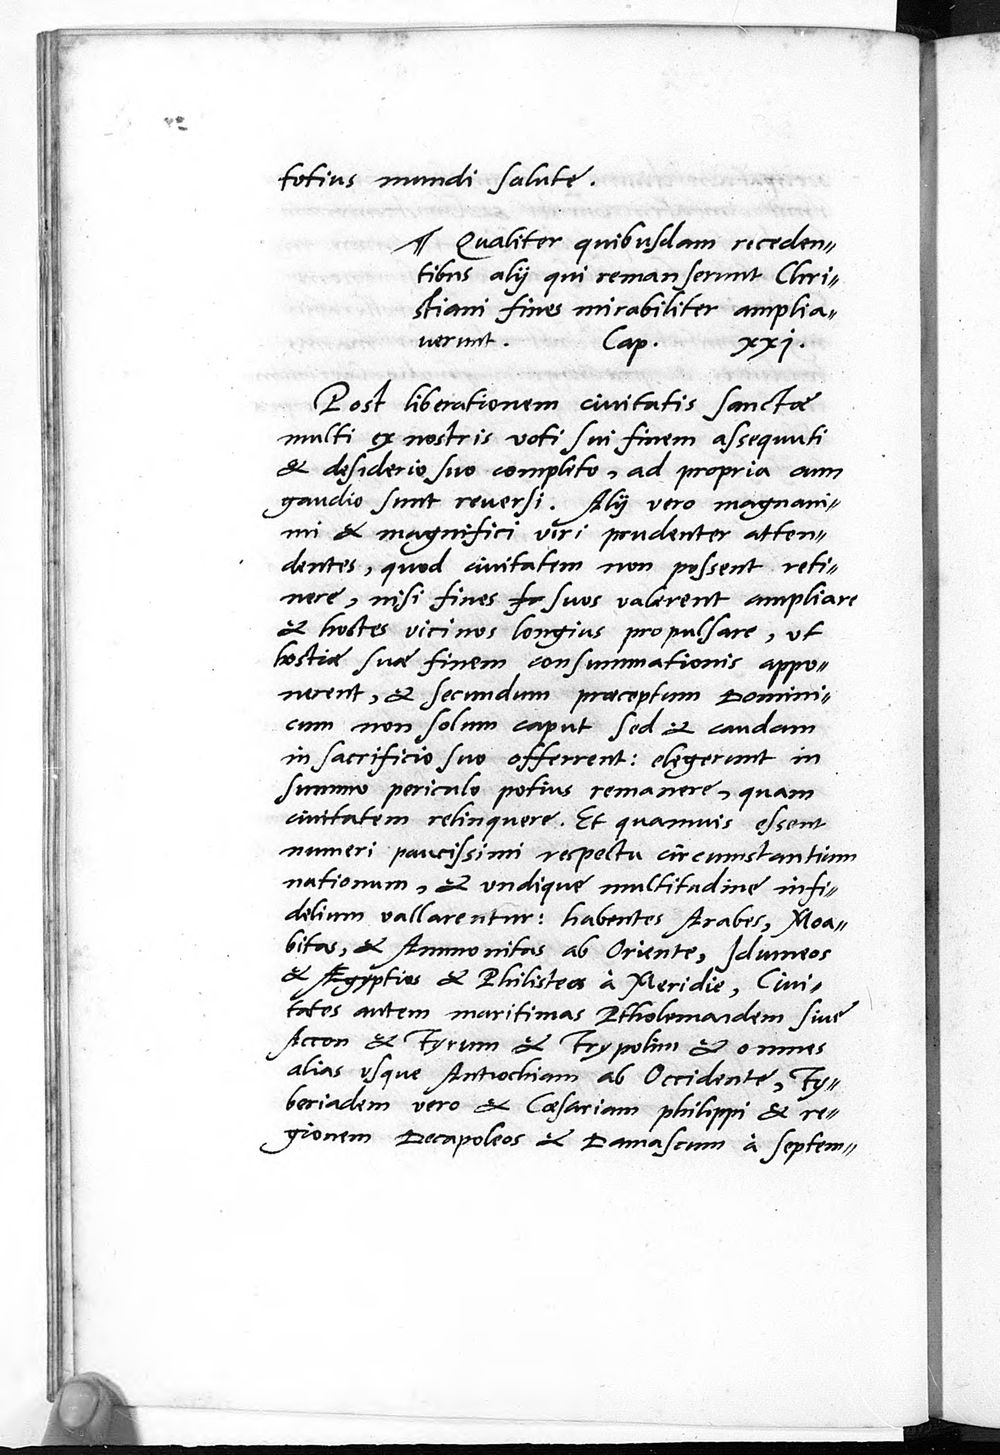 totius mundi salute.
¶ Qualiter quibusdam receden„
tibus alij qui remanserunt Chri„
stiani fines mirabiliter amplia„
uerunt. Cap. xxj.
Post liberationem ciuitatis sanctæ
multi ex nostris voti sui finem assequuti
& desiderio suo completo, ad propria cum
gaudio sunt reuersi. Alij vero magnani„
mi & magnifici viri prudenter atten„
dentes, quod ciuitatem non possent reti„
nere, nisi fines suos valerent ampliare
& hostes vicinos longius propulsare, vt
hostiæ suæ finem consummationis appo„
nerent, & secundum præceptum Domini„
cum non solum caput sed & caudam
in sacrificio suo offerrent: elęgerunt in
summo periculo potius remanere, quam
ciuitatem relinquere. Et quamuis essent
numeri paucissimi respectu circumstantium
nationum, & vndique multitudine infi„
delium vallarentur: habentes Arabes, Moa„
bitas, & Ammonitas ab Oriente, Idumeos
& Ægyptios & Philisteos à Meridie, Ciui„
tates autem maritimas Ptholemaidem siue
Accon & Tyrum & Trypolim & omnes
alias vsque Antiochiam ab Occidente, Ty„
beriadem vero & Cæsariam philippi & re„
gionem Decapoleos & Damascum à septem„